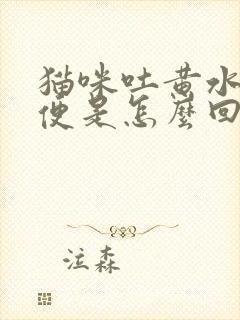 猫咪吐黄水
便是怎麼回
泣森